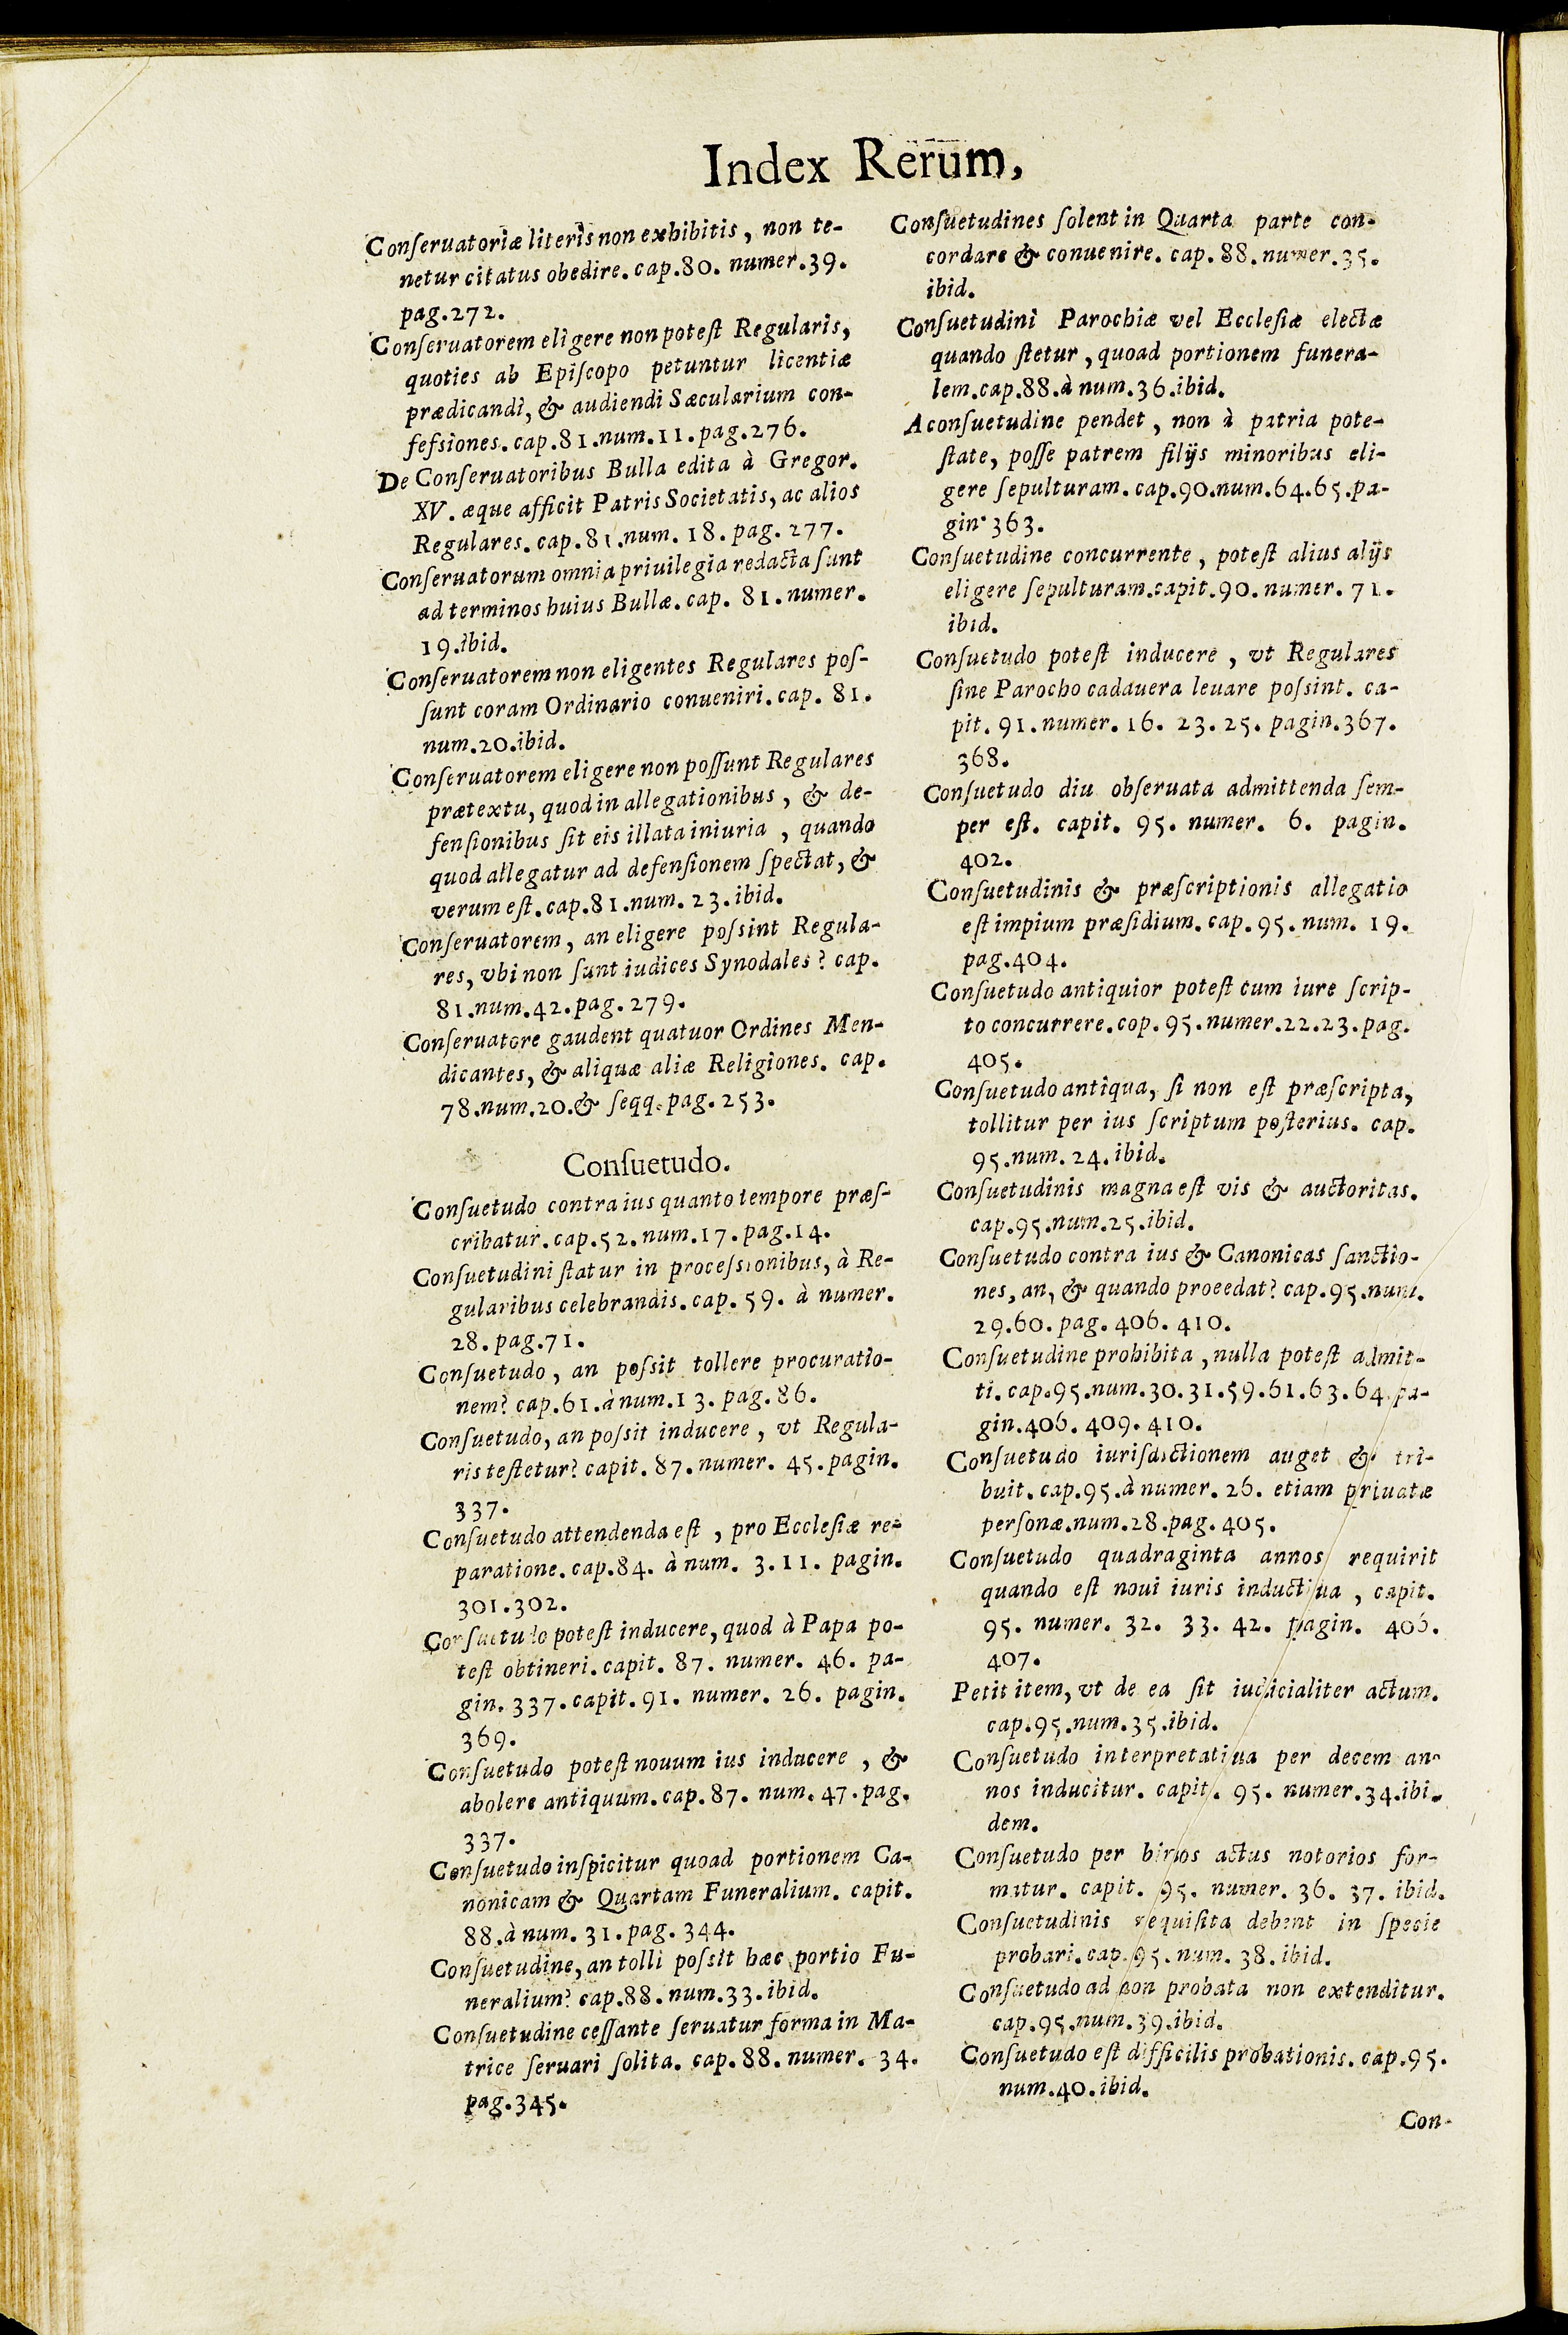 Index Rerum,
Conſeruatoriæ literis non exhibitis, non te-
netur citatus obedire. cap. 80. numer. 39.
pag. 272.
Conſeruatorem eligere non poteſt Regularis,
quoties ab Epiſcopo petuntur licentiæ
prædicandi, & audiendi Sæcularium con-
feſsiones. cap. 81. num. 11. pag. 276.
De Conſeruatoribus Bulla edita à Gregor.
XV. æque afficit Patris Societatis, ac alios
Regulares. cap. 81. num. 18. pag. 277.
Conſeruatorum omnia priuilegia redacta ſunt
ad terminos huius Bullæ. cap. 81. numer.
19. ibid.
Conſeruatorem non eligentes Regulares poſ-
ſunt coram Ordinario conueniri. cap. 81.
num. 20. ibid.
Conſeruatorem eligere non poſſunt Regulares
prætextu, quod in allegationibus, & de-
fenſionibus ſit eis illata iniuria, quando
quod allegatur ad defenſionem ſpectat, &
verum eſt. cap. 81. num. 23. ibid.
Conſeruatorem, an eligere poſsint Regula-
res, vbi non ſunt iudices Synodales? cap.
81. num. 42. pag. 279.
Conſeruatore gaudent quatuor Ordines Men-
dicantes, & aliquæ aliæ Religiones. cap.
78. num. 20. & ſeqq. pag. 253.
Conſuetudo.
Conſuetudo contra ius quanto tempore præſ-
cribatur. cap. 52. num. 17. pag. 14.
Conſuetudini ſtatur in proceſsionibus, à Re-
gularibus celebrandis. cap. 59. à numer.
28. pag. 71.
Conſuetudo, an poſsit tollere procuratio-
nem? cap. 61. à num. 13. pag. 86.
Conſuetudo, an poſsit inducere, vt Regula-
ris teſtetur? capit. 87. numer. 45. pagin.
337.
Conſuetudo attendenda eſt, pro Eccleſiæ re-
paratione. cap. 84. à num. 3. 11. pagin.
301. 302.
Conſuetudo poteſt inducere, quod à Papa po-
teſt obtineri. capit. 87. numer. 46. pa-
gin. 337. capit. 91. numer. 26. pagin.
369.
Conſuetudo poteſt nouum ius inducere, &
abolere antiquum. cap. 87. num. 47. pag.
337.
Conſuetudo inſpicitur quoad portionem Ca-
nonicam & Quartam Funeralium. capit.
88. à num. 31. pag. 344.
Conſuetudine, an tolli poſsit hæc portio Fu-
neralium? cap. 88. num. 33. ibid.
Conſuetudine ceſſante ſeruatur forma in Ma-
trice ſeruari ſolita. cap. 88. numer. 34.
pag. 345.
Conſuetudines ſolent in Quarta parte con-
cordare & conuenire. cap. 88. numer. 35.
ibid.
Conſuetudini Parochiæ vel Eccleſiæ electæ
quando ſtetur, quoad portionem funera-
lem. cap. 88. à num. 36. ibid.
A conſuetudine pendet, non à patria pote-
ſtate, poſſe patrem filijs minoribus eli-
gere ſepulturam. cap. 90. num. 64. 65. pa-
gin. 363.
Conſuetudine concurrente, poteſt alius alijs
eligere ſepulturam. capit. 90. numer. 71.
ibid.
Conſuetudo poteſt inducere, vt Regulares
ſine Parocho cadauera leuare poſsint. ca-
pit. 91. numer. 16. 23. 25. pagin. 367.
368.
Conſuetudo diu obſeruata admittenda ſem-
per eſt. capit. 95. numer. 6. pagin.
402.
Conſuetudinis & præſcriptionis allegatio
eſt impium præſidium. cap. 95. num. 19.
pag. 404.
Conſuetudo antiquior poteſt cum iure ſcrip-
to concurrere. cop. 95. numer. 22. 23. pag.
405.
Conſuetudo antiqua, ſi non eſt præſcripta,
tollitur per ius ſcriptum poſterius. cap.
95. num. 24. ibid.
Conſuetudinis magna eſt vis & auctoritas.
cap. 95. num. 25. ibid.
Conſuetudo contra ius & Canonicas ſanctio-
nes, an, & quando proeedat? cap. 95. num.
29. 60. pag. 406. 410.
Conſuetudine prohibita, nulla poteſt admit-
ti. cap. 95. num. 30. 31. 59. 61. 63. 64. pa-
gin. 406. 409. 410.
Conſuetudo iuriſdictionem auget & tri-
buit. cap. 95. à numer. 26. etiam priuatæ
perſonæ. num. 28. pag. 405.
Conſuetudo quadraginta annos requirit
quando eſt noui iuris inductiua, capit.
95. numer. 32. 33. 42. pagin. 406.
407.
Petit item, vt de ea ſit iudicialiter actum.
cap. 95. num. 35. ibid.
Conſuetudo interpretatiua per decem an-
nos inducitur. capit. 95. numer. 34. ibi-
dem.
Conſuetudo per binos actus notorios for-
matur. capit. 95. numer. 36. 37. ibid.
Conſuetudinis requiſita debent in ſpecie
probari. cap. 95. num. 38. ibid.
Conſuetudo ad non probata non extenditur.
cap. 95. num. 39. ibid.
Conſuetudo eſt difficilis probationis. cap. 95.
num. 40. ibid.
Con-